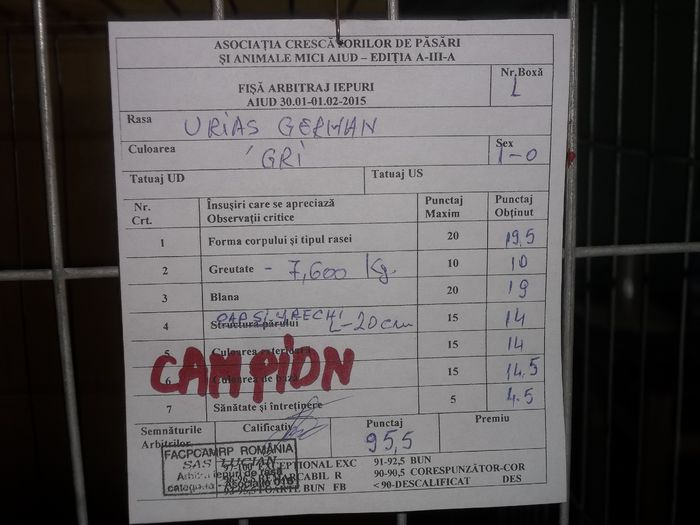 ASOCIAȚIA CRESCĂTORILOR DE PĂSĂRI
ȘI ANIMALE MICI AIUD – EDIȚIA A-III-A
FIȘĂ ARBITRAJ IEPURI
AIUD 30.01-01.02-2015
Nr.Boxă
L
Rasa URIAS GERMAN
Culoarea GRI
Sex
1-0
Tatuaj UD Tatuaj US
Nr. Crt. Însușiri care se apreciază Observații critice Punctaj Maxim Punctaj Obținut
1 Forma corpului și tipul rasei 20 19,5
2 Greutate - 7,600 Kg. 10 10
3 Blana 20 19
CAP SI URECHI
4 Structura părului L-20cm 15 14
5 Culoarea exterioară 15 14
CAMPION
6 Culoarea de bază 15 14.5
7 Sănătate și întreținere 5 4.5
Semnăturile Arbitrilor Calificativ Punctaj Premiu
95,5
FACPCAMRP ROMÂNIA
SAS LUCIAN
Arbitru iepuri de rasă
97-100 EXCEPTIONAL EXC 91-92,5 BUN
REMARCABIL R 90-90,5 CORESPUNZĂTOR-COR
FOARTE BUN FB < 90-DESCALIFICAT DES